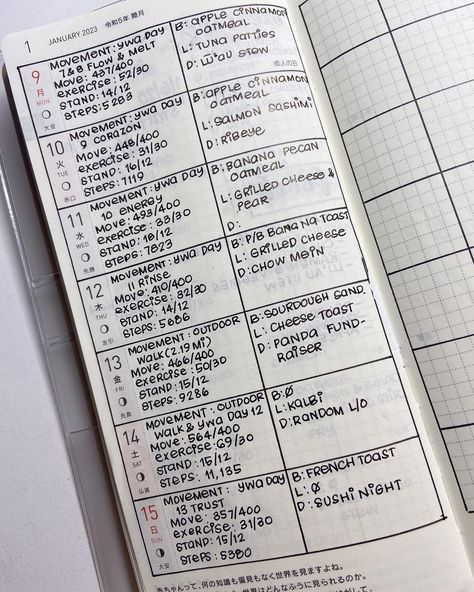 1 JANUARY 2023 令和5年 睦月
9
月
MON
大安
MOVEMENT: YWA DAY
7&8 FLOW & MELT
MOVE: 437/400
EXERCISE: 52/30
STAND: 14/12
STEPS: 5283
B: APPLE CINNAMON
OATMEAL
L: TUNA PATTIES
D: LU'AU STEW
成人の日
10
火
TUE
赤口
MOVEMENT: YWA DAY
9 CORAZON
MOVE: 448/400
EXERCISE: 31/30
STAND: 16/12
STEPS: 7119
B: APPLE CINNAMON
OATMEAL
L: SALMON SASHIMI
D: RIBEYE
11
水
WED
先勝
MOVEMENT: YWA DAY
10 ENERGY
MOVE: 493/400
EXERCISE: 33/30
STAND: 18/12
STEPS: 7823
B: BANANA PECAN
OATMEAL
L: GRILLED CHEESE &
PEAR
D:
12
木
THU
友引
MOVEMENT: YWA DAY
11 RINSE
MOVE: 410/400
EXERCISE: 32/30
STAND: 14/12
STEPS: 5686
B: P/B BANANA TOAST
L: GRILLED CHEESE
D: CHOW MEIN
13
金
FRI
先負
MOVEMENT: OUTDOOR
WALK (2.19 MI)
MOVE: 466/400
EXERCISE: 50/30
STAND: 15/12
STEPS: 9286
B: SOURDOUGH SAND.
L: CHEESE TOAST
D: PANDA FUND-
RAISER
14
土
SAT
仏滅
MOVEMENT: OUTDOOR
WALK & YWA DAY 12
MOVE: 564/400
EXERCISE: 69/30
STAND: 15/12
STEPS: 11,135
B: Ø
L: KALBI
D: RANDOM L/O
15
日
SUN
大安
MOVEMENT: YWA DAY
13 TRUST
MOVE: 357/400
EXERCISE: 31/30
STAND: 15/12
STEPS: 5300
B: FRENCH TOAST
L: Ø
D: SUSHI NIGHT
赤ちゃんって、何の知識も偏見もなく世界を見ますよね。
世界はどんなふうに見られるのか。